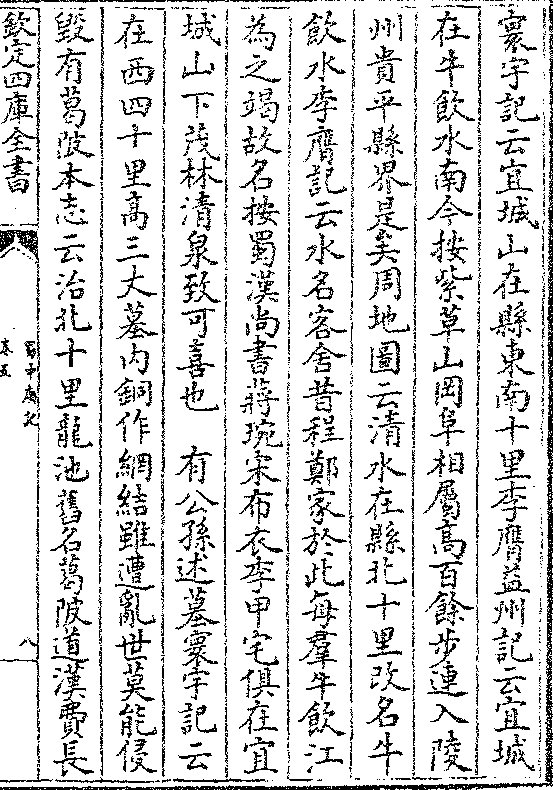 寰宇記云宜城山在縣東南十里李膺益州記云宜城
在牛飲水南今按紫草山岡阜相屬高百餘步連入陵
州貴平縣界是矣周地圖云清水在縣北十里改名牛
飲水李膺記云水名客舍昔程鄭家於此每羣牛飲江
為之竭故名按蜀漢尚書蔣琬宋布衣李申宅俱在宜
城山下茂林清泉致可喜也　有公孫述墓寰宇記云
在西四十里高三丈墓内銅作網結雖遭亂世莫能侵
毀有葛陂本志云治北十里龍池舊名葛陂道漢費長
欽定四庫全書
蜀中廣記
卷五
八